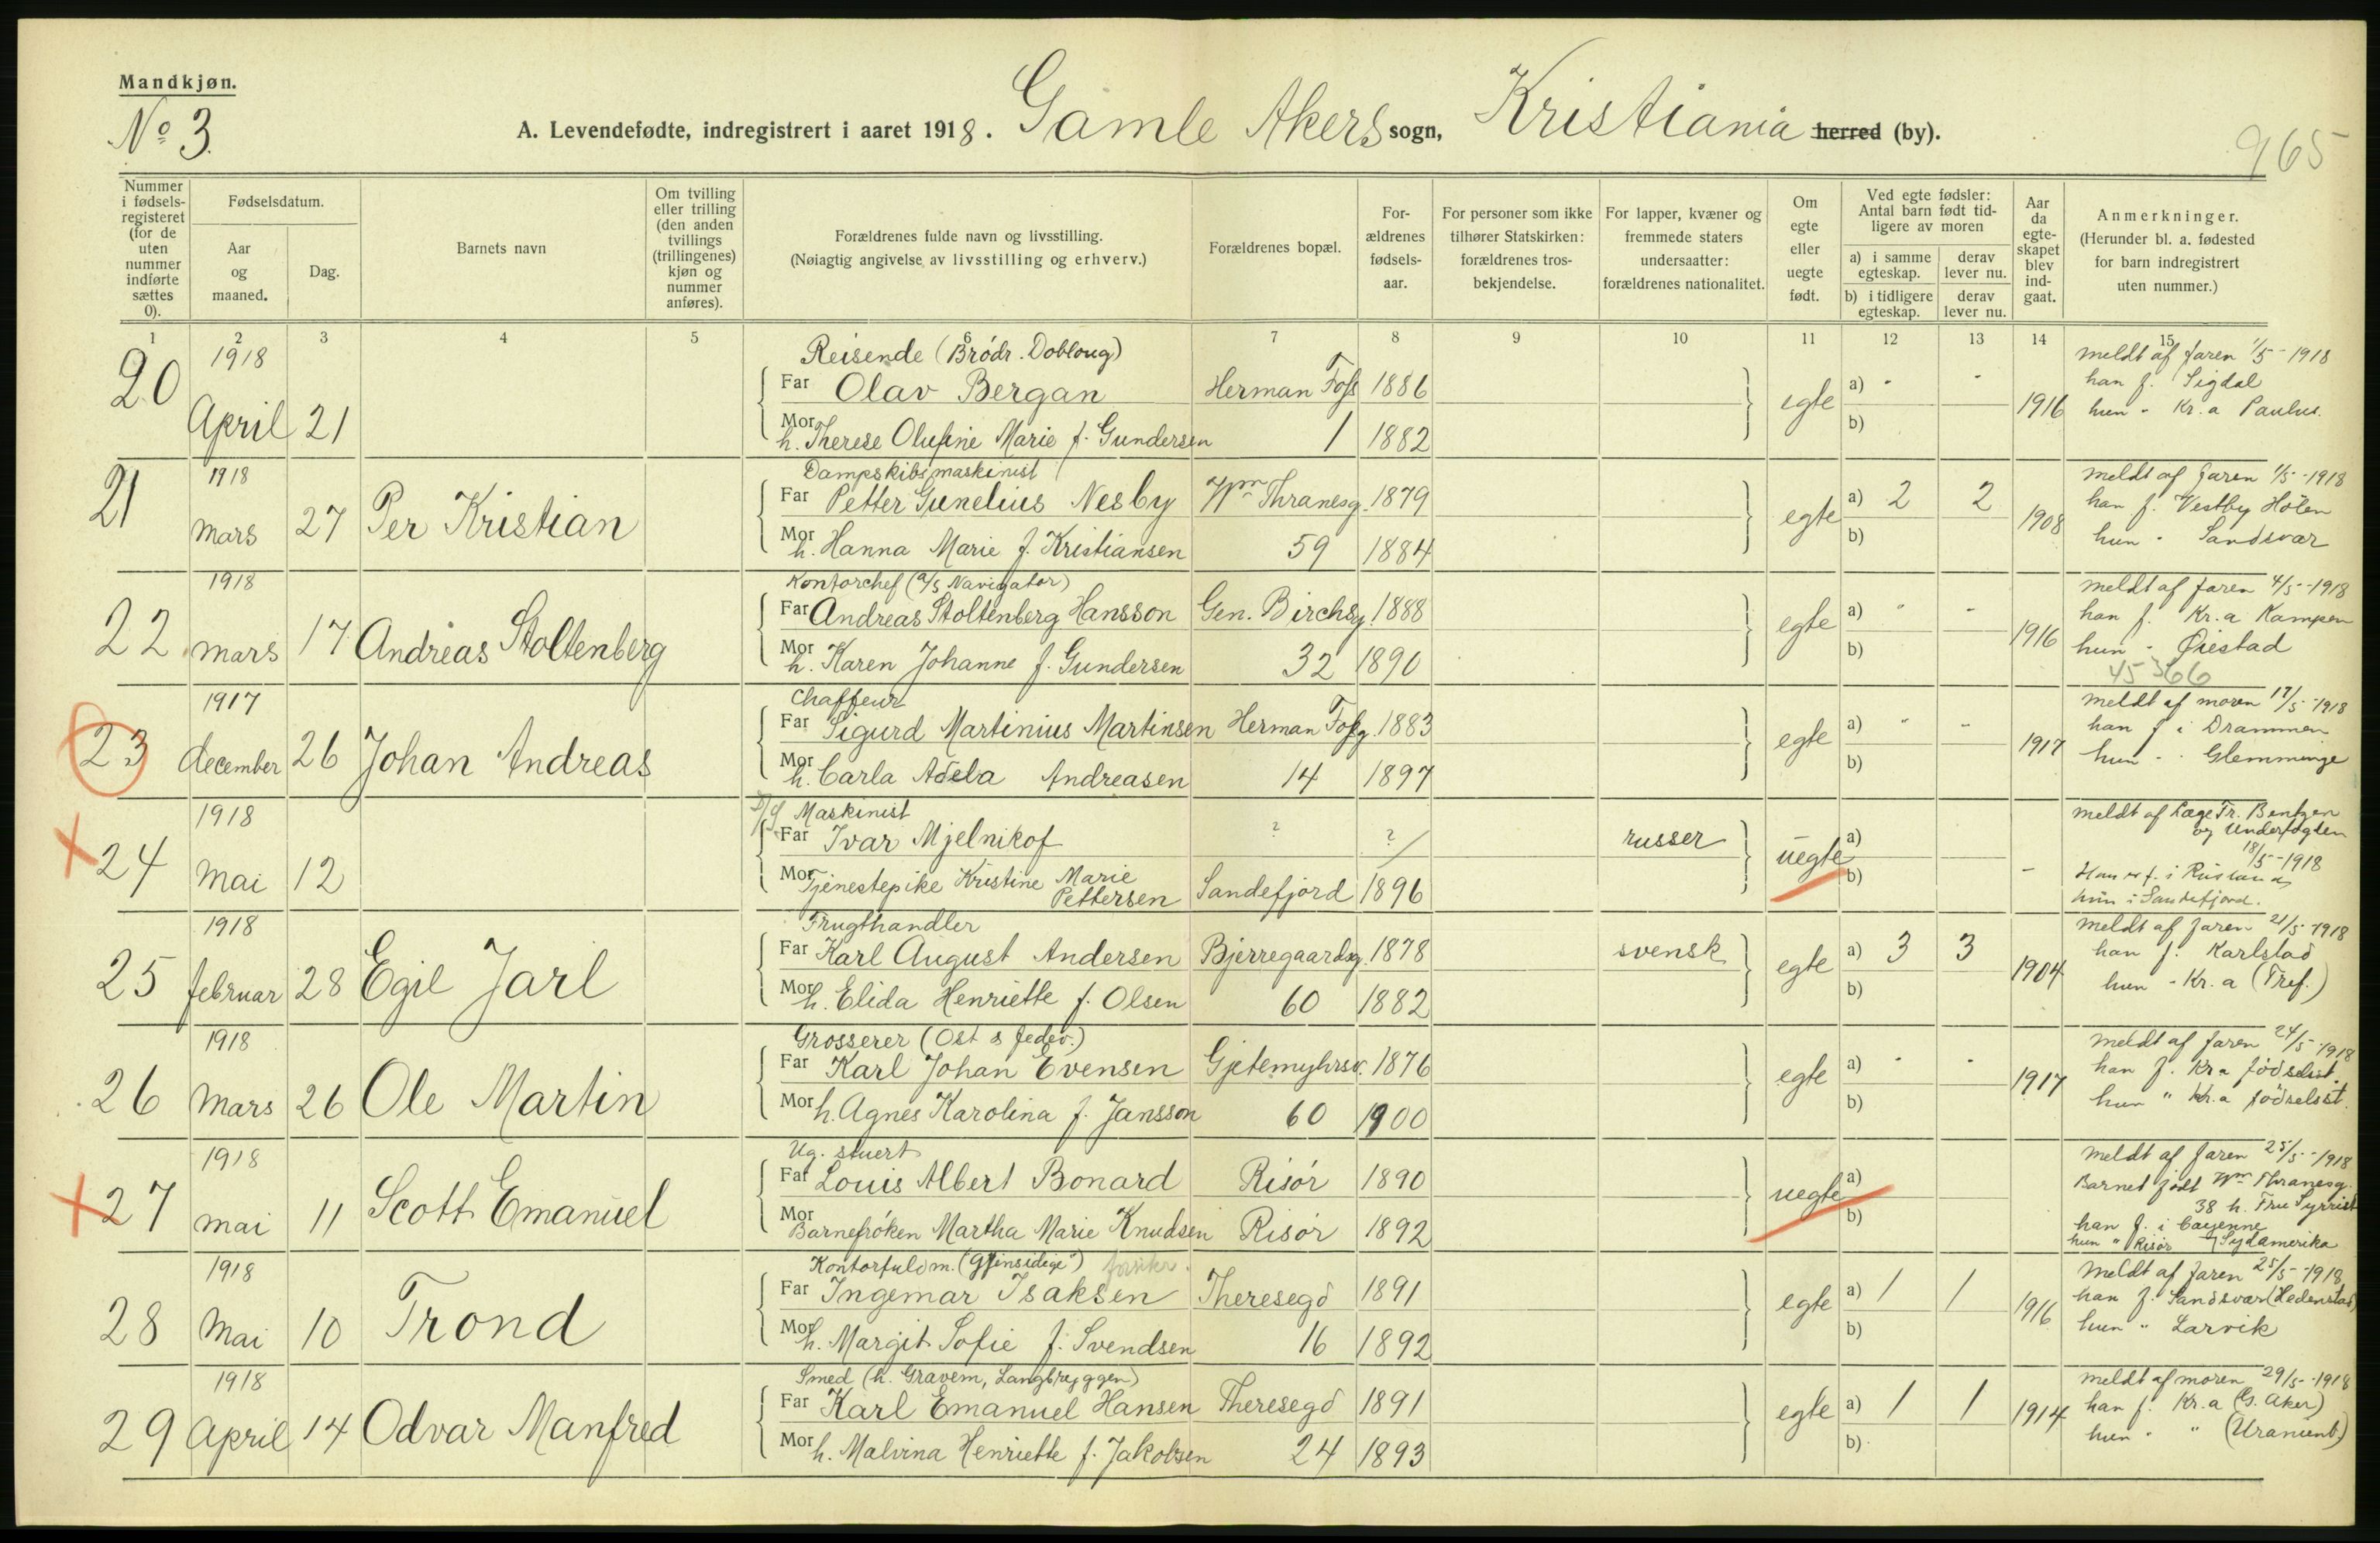 Mandkjøn.
No 3.
A. Levendefødte, indregistrert i aaret 1918. Gamle Akers sogn, Kristiania herred (by).
965
Nummer i fødselsregisteret (for de uten nummer indførte sættes 0).
Fødselsdatum.
Aar og maaned.
Dag.
Barnets navn
Om tvilling eller trilling (den anden tvillings (trillingenes) kjøn og nummer anføres).
Forældrenes fulde navn og livsstilling.
(Nøiagtig angivelse av livsstilling og erhverv.)
Forældrenes bopæl.
Forældrenes fødselsaar.
For personer som ikke tilhører Statskirken: forældrenes trosbekjendelse.
For lapper, kvæner og fremmede staters undersaatter: forældrenes nationalitet.
Om egte eller uegte født.
Ved egte fødsler: Antal barn født tidligere av moren
a) i samme egteskap. derav lever nu.
b) i tidligere egteskap. derav lever nu.
Aar da egteskapet blev indgaat.
Anmerkninger.
(Herunder bl. a. fødested for barn indregistrert uten nummer.)
1 2 3 4 5 6 7 8 9 10 11 12 13 14 15
1918 Reisende (Brødr. Dobloug) meldt af faren 1/5-1918
20 Far Olav Bergan Herman Foss 1886 egte a) - - 1916 han f. Sigdal
April 21 Mor h. Therese Olufine Marie f. Gundersen 1 1882 b) hun - Kr.a Paulus.
1918 Dampskibsmaskinist meldt af faren 1/5-1918
21 Far Petter Gunelius Nesby Wm Thranesg. 1879 egte a) 2 2 1908 han f. Vestby Hölen
mars 27 Per Kristian Mor h. Hanna Marie f. Kristiansen 59 1884 b) hun - Sandsvær
1918 Kontorchef (A/S Navigator) meldt af faren 4/5-1918
22 Far Andreas Stoltenberg Hansson Gen. Birchsg. 1888 egte a) - - 1916 han f. Kr.a Kampen
mars 17 Andreas Stoltenberg Mor h. Karen Johanne f. Gundersen 32 1890 b) hun - Øiestad
45366
1917 Chaffeur meldt af moren 17/5-1918
23 Far Sigurd Martinius Martinsen Herman Fossg. 1883 egte a) - - 1917 han f i Drammen
december 26 Johan Andreas Mor h. Carla Adela Andreasen 14 1897 b) hun - - Glemminge
1918 Maskinist meldt af Læge Tr. Bentzen
24 Far Ivar Mjelnikof ? ? russer uegte a) og Underfogden
18/5-1918
mai 12 Mor Tjenestepike Kristine Marie Pettersen Sandefjord 1896 b) - Han er f. i Rusland
hun i Sandefjord.
1918 Frugthandler meldt af faren 21/5-1918
25 Far Karl August Andersen Bjerregaardsg. 1878 svensk egte a) 3 3 1904 han f. Karlstad
februar 28 Egil Jarl Mor h. Elida Henriette f. Olsen 60 1882 b) hun - Kr.a (Tref.)
1918 Grosserer (Ost & fedev.) meldt af faren 24/5-1918
26 Far Karl Johan Evensen Gjetemyhrsv. 1876 egte a) - - 1917 han f. Kra fødselsst.
mars 26 Ole Martin Mor h. Agnes Karolina f. Jansson 60 1900 b) hun " Kr.a fødselsst.
1918 Ug. stuert meldt af faren 25/5-1918
27 Far Louis Albert Bonard Risør 1890 uegte a) Barnet født Wm Thranesg.
38 h. Fru Syrrist
mai 11 Scott Emanuel Mor Barnefrøken Martha Marie Knudsen Risør 1892 b) han f. i Cayenne
hun " Risør Sydamerika
1918 Kontorfuldm. ("Gjensidige") meldt af faren 25/5-1918
28 Far Ingemar Isaksen Theresegd 1891 egte a) 1 1 1916 han f. Sandsvær (Hedenstad)
Mai 10 Trond Mor h. Margit Sofie f. Svendsen 16 1892 b) hun " Larvik
1918 Smed (h. Gravem, Langbryggen) meldt af moren 29/5-1918
29 Far Karl Emanuel Hansen Theresegd 1891 egte a) 1 1 1914 han f. Kr.a (G. Aker)
April 14 Odvar Manfred Mor h. Malvina Henriette f. Jakobsen 24 1893 b) hun " " (Uranienb.)